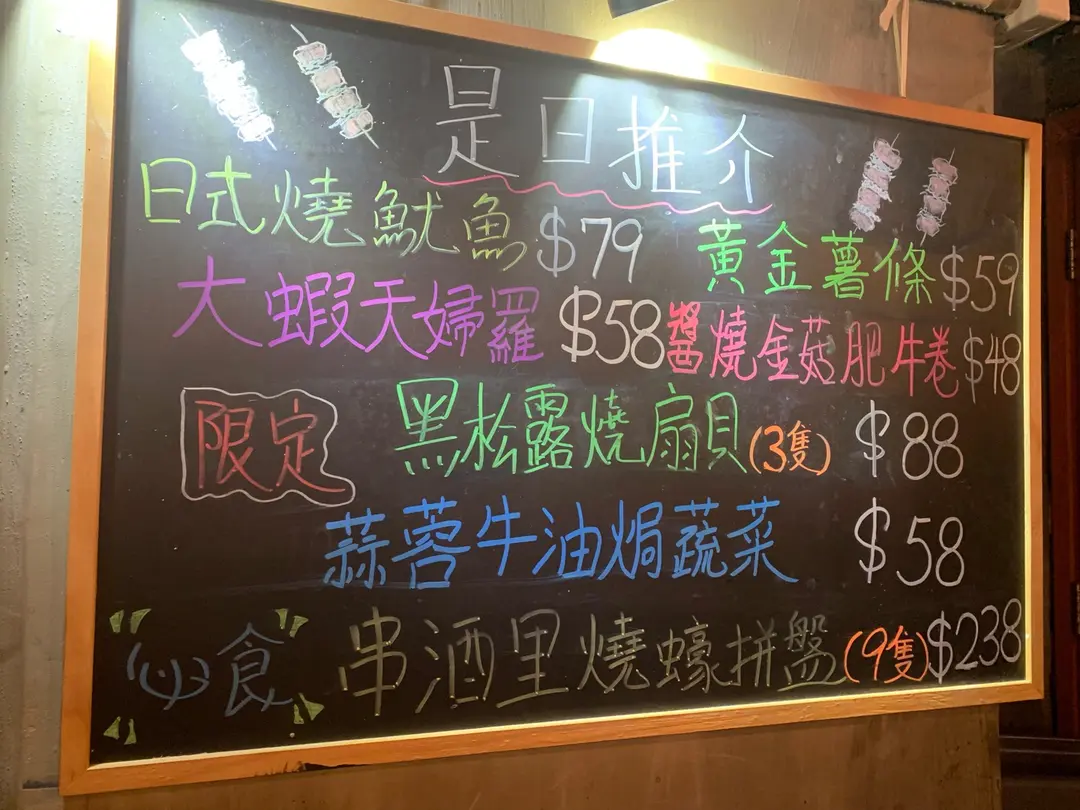 是日推介
日式燒魷魚 $79
黃金薯條 $59
大蝦天婦羅 $58
醬燒金菇肥牛卷 $48
限定 黑松露燒扇貝(3隻) $88
蒜蓉牛油焗蔬菜 $58
心食 串酒里燒蠔拼盤(9隻) $238